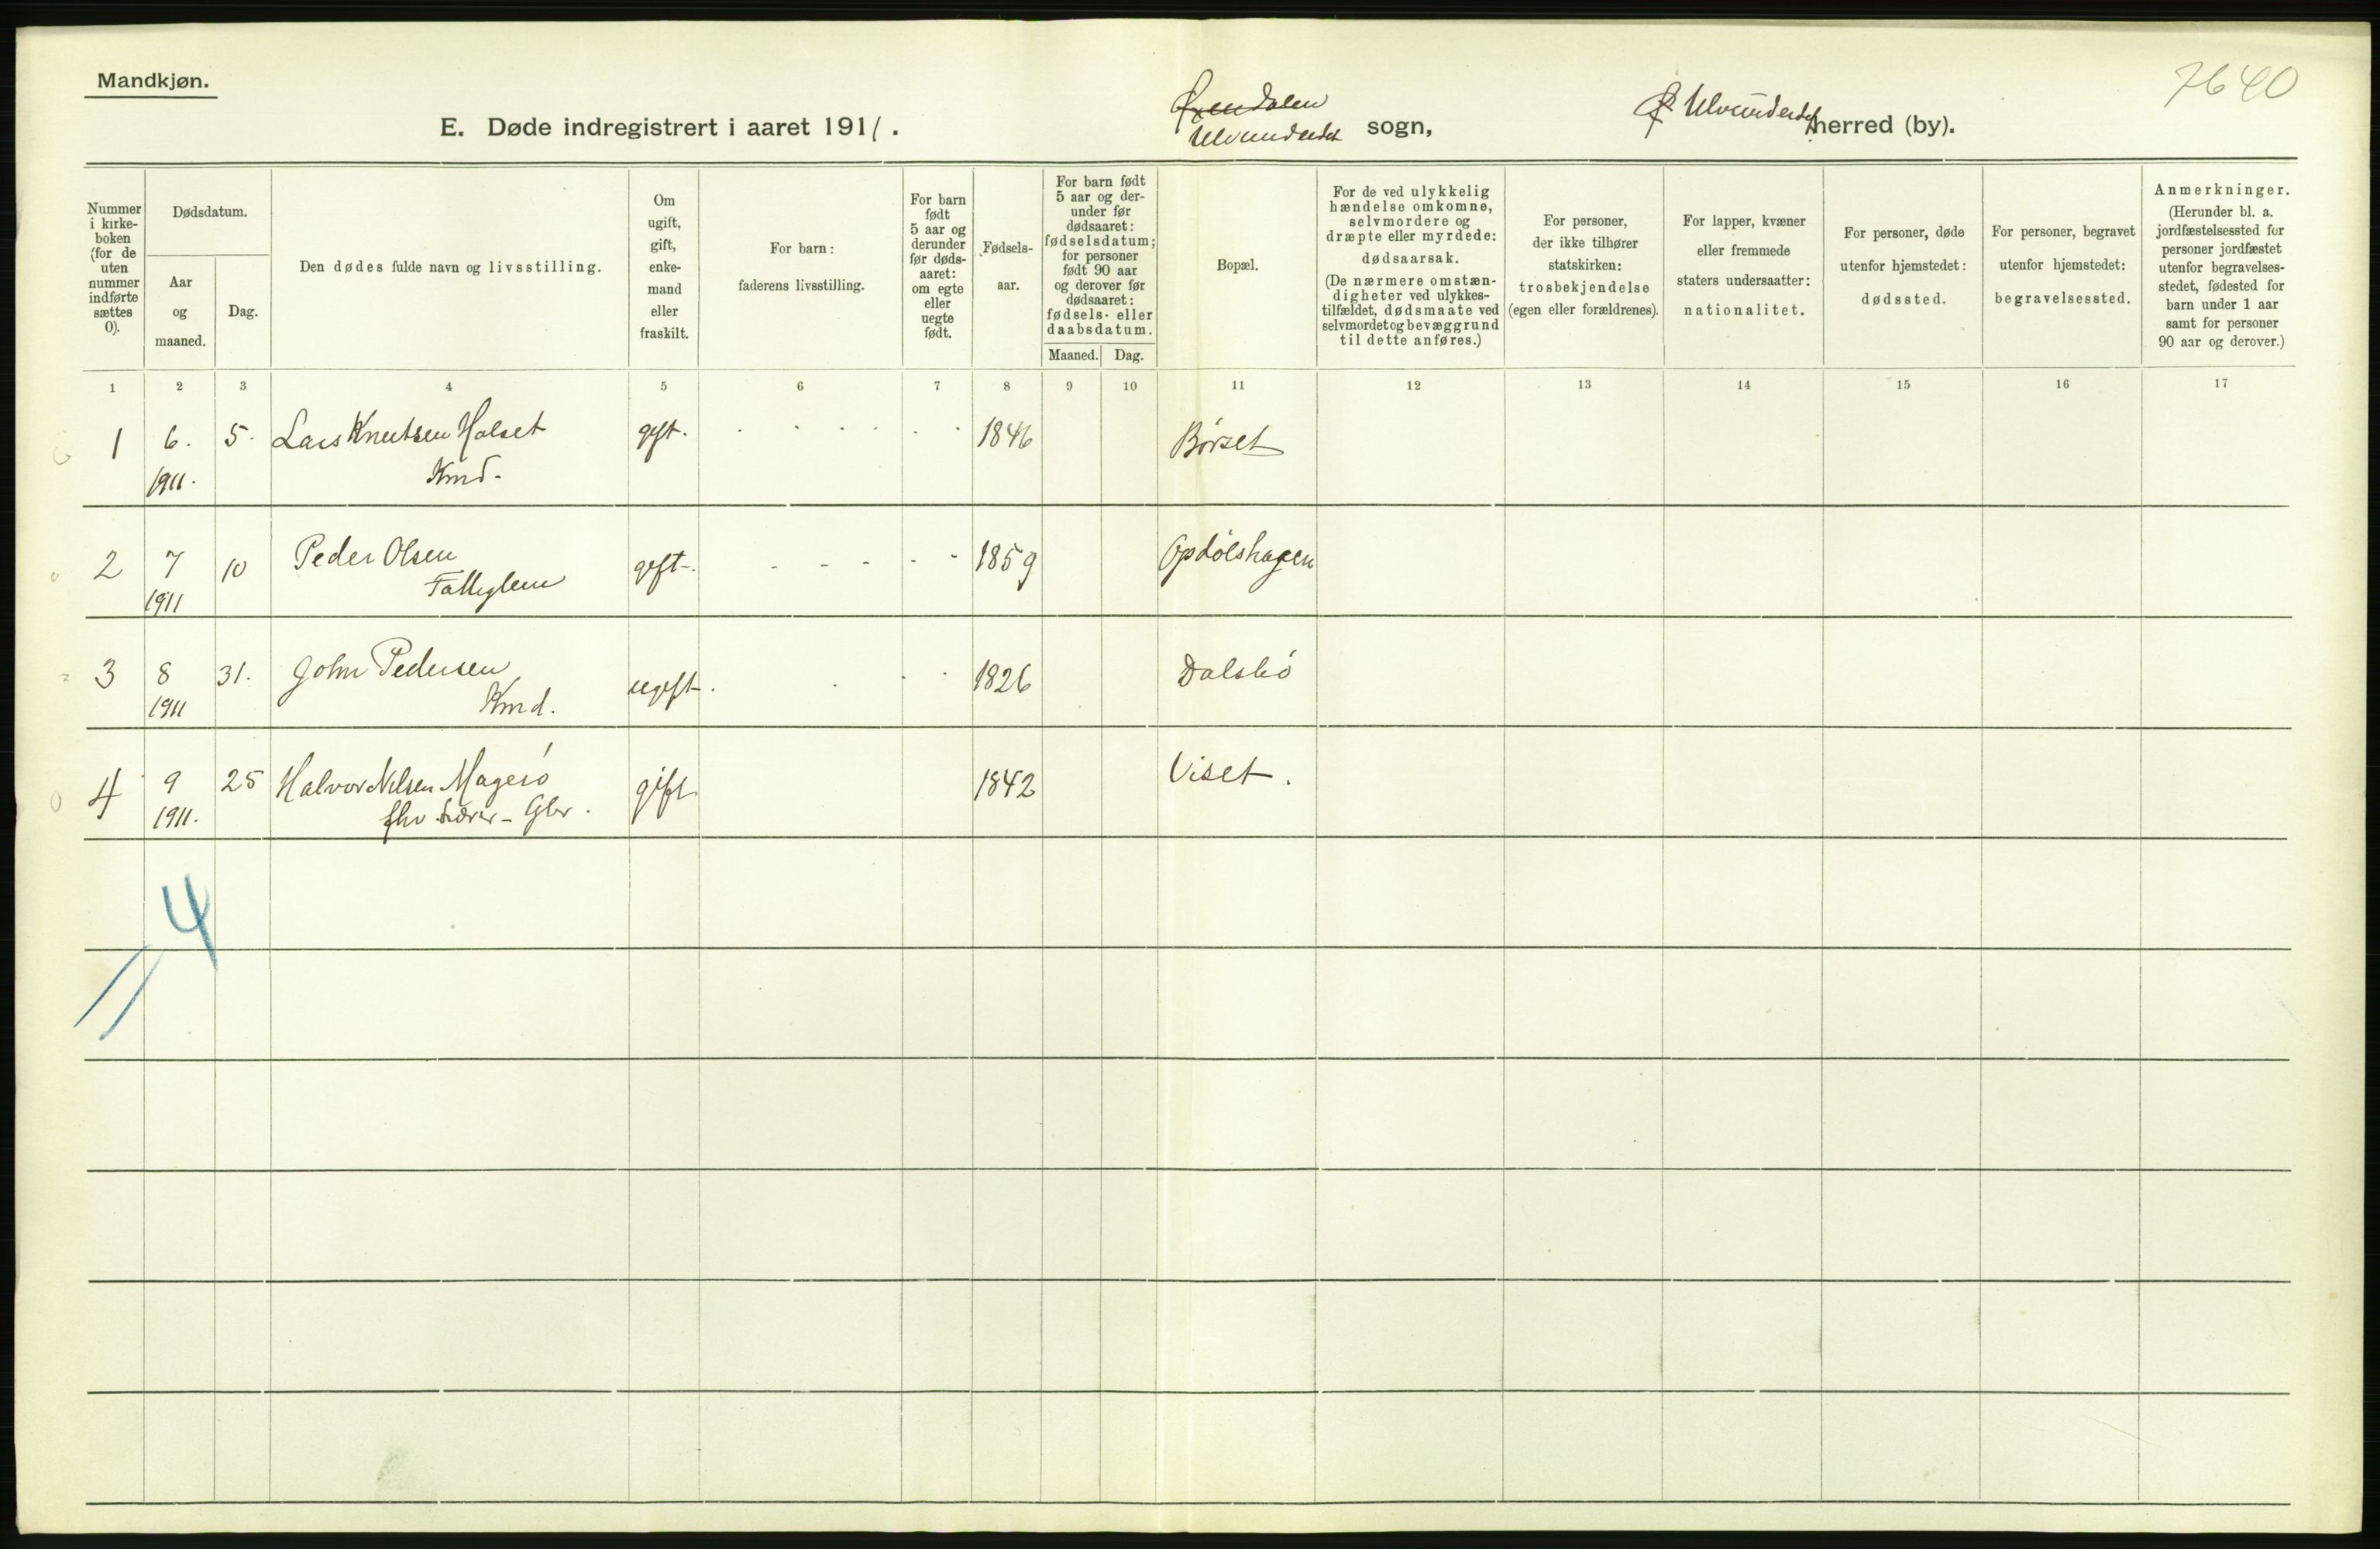 Mandkjøn.
7640
E. Døde indregistrert i aaret 1911.
Øxendalen
Ulvundeidet sogn,
Ø Ulvundeidet herred (by).
Nummer i kirke-boken (for de uten nummer indførte sættes 0).
Dødsdatum.
Aar og maaned.
Dag.
Den dødes fulde navn og livsstilling.
Om ugift, gift, enke-mand eller fraskilt.
For barn: faderens livsstilling.
For barn født 5 aar og derunder før døds-aaret: om egte eller uegte født.
Fødsels-aar.
For barn født 5 aar og der-under før dødsaaret: fødselsdatum; for personer født 90 aar og derover før dødsaaret: fødsels- eller daabsdatum.
Maaned. Dag.
Bopæl.
For de ved ulykkelig hændelse omkomne, selvmordere og dræpte eller myrdede: dødsaarsak.
(De nærmere omstæn-digheter ved ulykkes-tilfældet, dødsmaate ved selvmordet og bevæggrund til dette anføres.)
For personer, der ikke tilhører statskirken: trosbekjendelse (egen eller forældrenes).
For lapper, kvæner eller fremmede staters undersaatter: nationalitet.
For personer, døde utenfor hjemstedet: dødssted.
For personer, begravet utenfor hjemstedet: begravelsessted.
Anmerkninger.
(Herunder bl. a. jordfæstelsessted for personer jordfæstet utenfor begravelses-stedet, fødested for barn under 1 aar samt for personer 90 aar og derover.)
1 2 3 4 5 6 7 8 9 10 11 12 13 14 15 16 17
1 6. 5. Lars Knutsen Holset gift. 1846 Børset
1911. Kmd.
2 7 10 Peder Olsen gift. 1859 Opdølshagen
1911
3 8 31. John Pedersen ugift. 1826 Dalsbø
1911 Kmd.
4 9 25 Halvor Nilsen Magerø gift 1842 Viset.
1911. fhv. Lærer - Gbr.
4